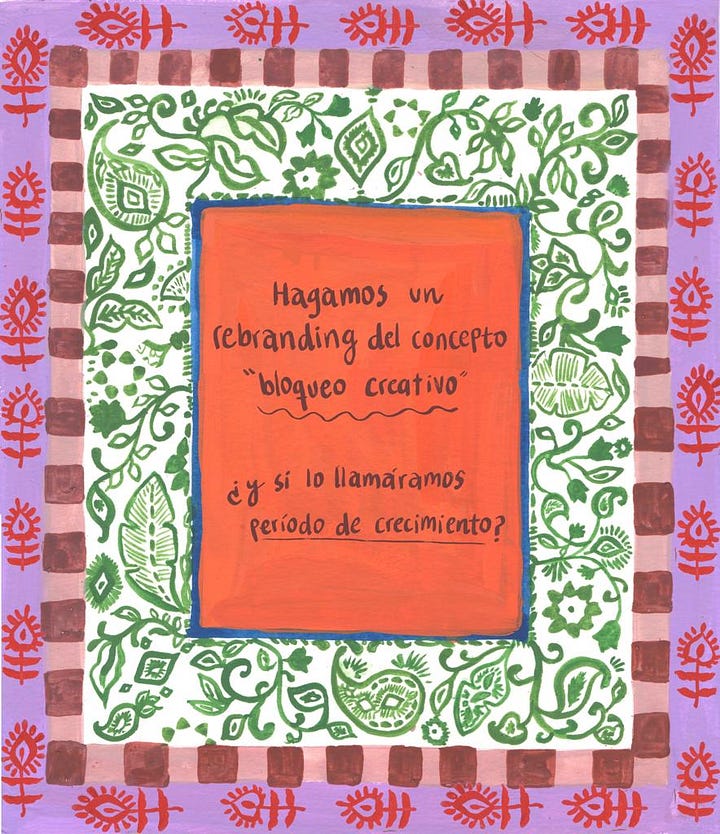 Hagamos un
rebranding del concepto
"bloqueo creativo"
¿y si lo llamáramos
período de crecimiento?